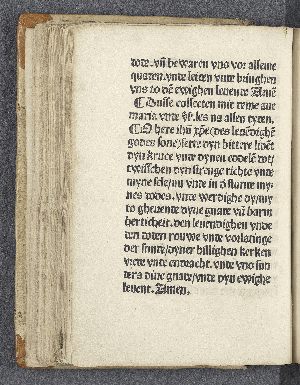 dote. vñ bewaren vns vor alleme
quaten. vnte leiten vnte bringhen
vns to dē ewighen leuente Amē
¶ Duſſe collecten mit eyme aue
maria vnte
les na allen tyten.
¶ O here iħu xp̄e (des leuēdighē
godes ſone) ſette dyn bittere
dyn kruce vnte dynen
twiſſchen dyn ſtrenge richte vnte
myne ſele/nu vnte in d' ſtunte my-
nes dodes. vnte werdighe dy/my
to gheuente dyne gnate vñ barm
herticheit. den leuendighen vnde
den doten rouwe vnte vorlatinge
der ſunte/dyner hillighen kerken
vrete vnte endracht. vnte vns ſun
ders dyne gnate/vnte dyn ewighe
leuent. Amen.